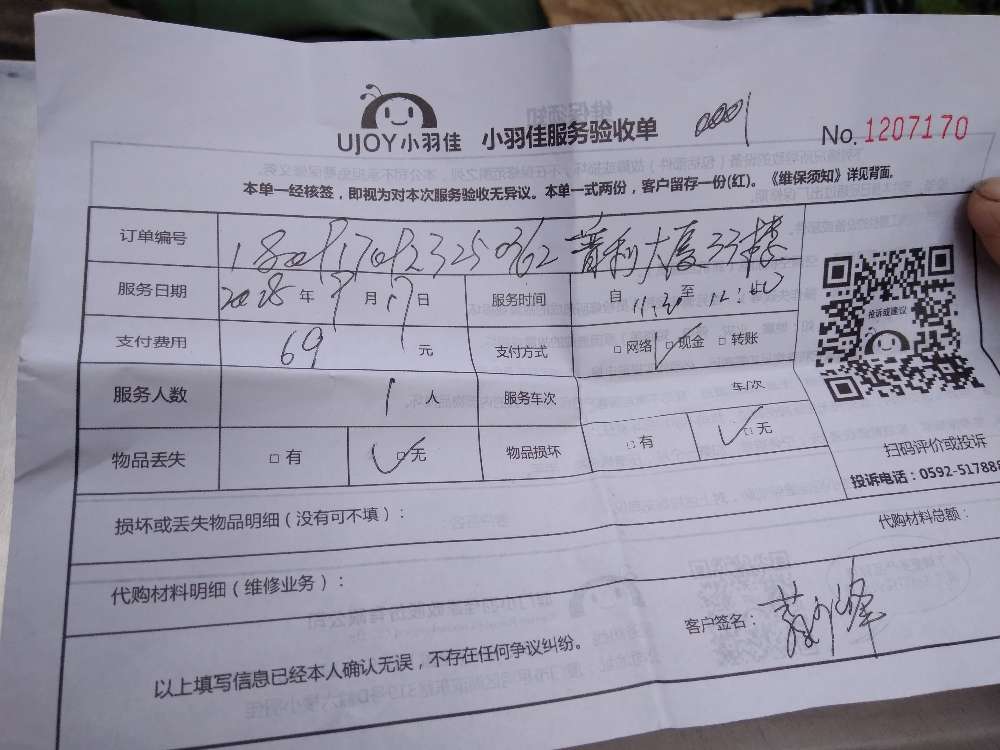 UJOY小羽佳 小羽佳服务验收单 0001 No. 1207170
本单一经核签，即视为对本次服务验收无异议。本单一式两份，客户留存一份(红)。《维保须知》详见背面。
订单编号 普利大厦33楼
服务日期 年 9 月 17 日 服务时间 自 11:30 至
支付费用 69 元 支付方式 □ 网络 □ 现金 □ 转账
服务人数 1 人 服务车次 车/次
物品丢失 □ 有 □ 无 物品损坏 □ 有 □ 无
投诉或建议
扫码评价或投诉
投诉电话：0592-517888
损坏或丢失物品明细（没有可不填）：
代购材料总额：
代购材料明细（维修业务）：
客户签名：
以上填写信息已经本人确认无误，不存在任何争议纠纷。